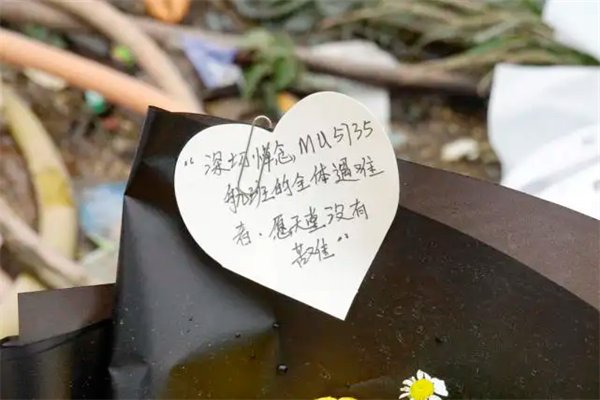 “深切悼念，MU5735
航班的全体遇难
者．愿天堂没有
苦难”